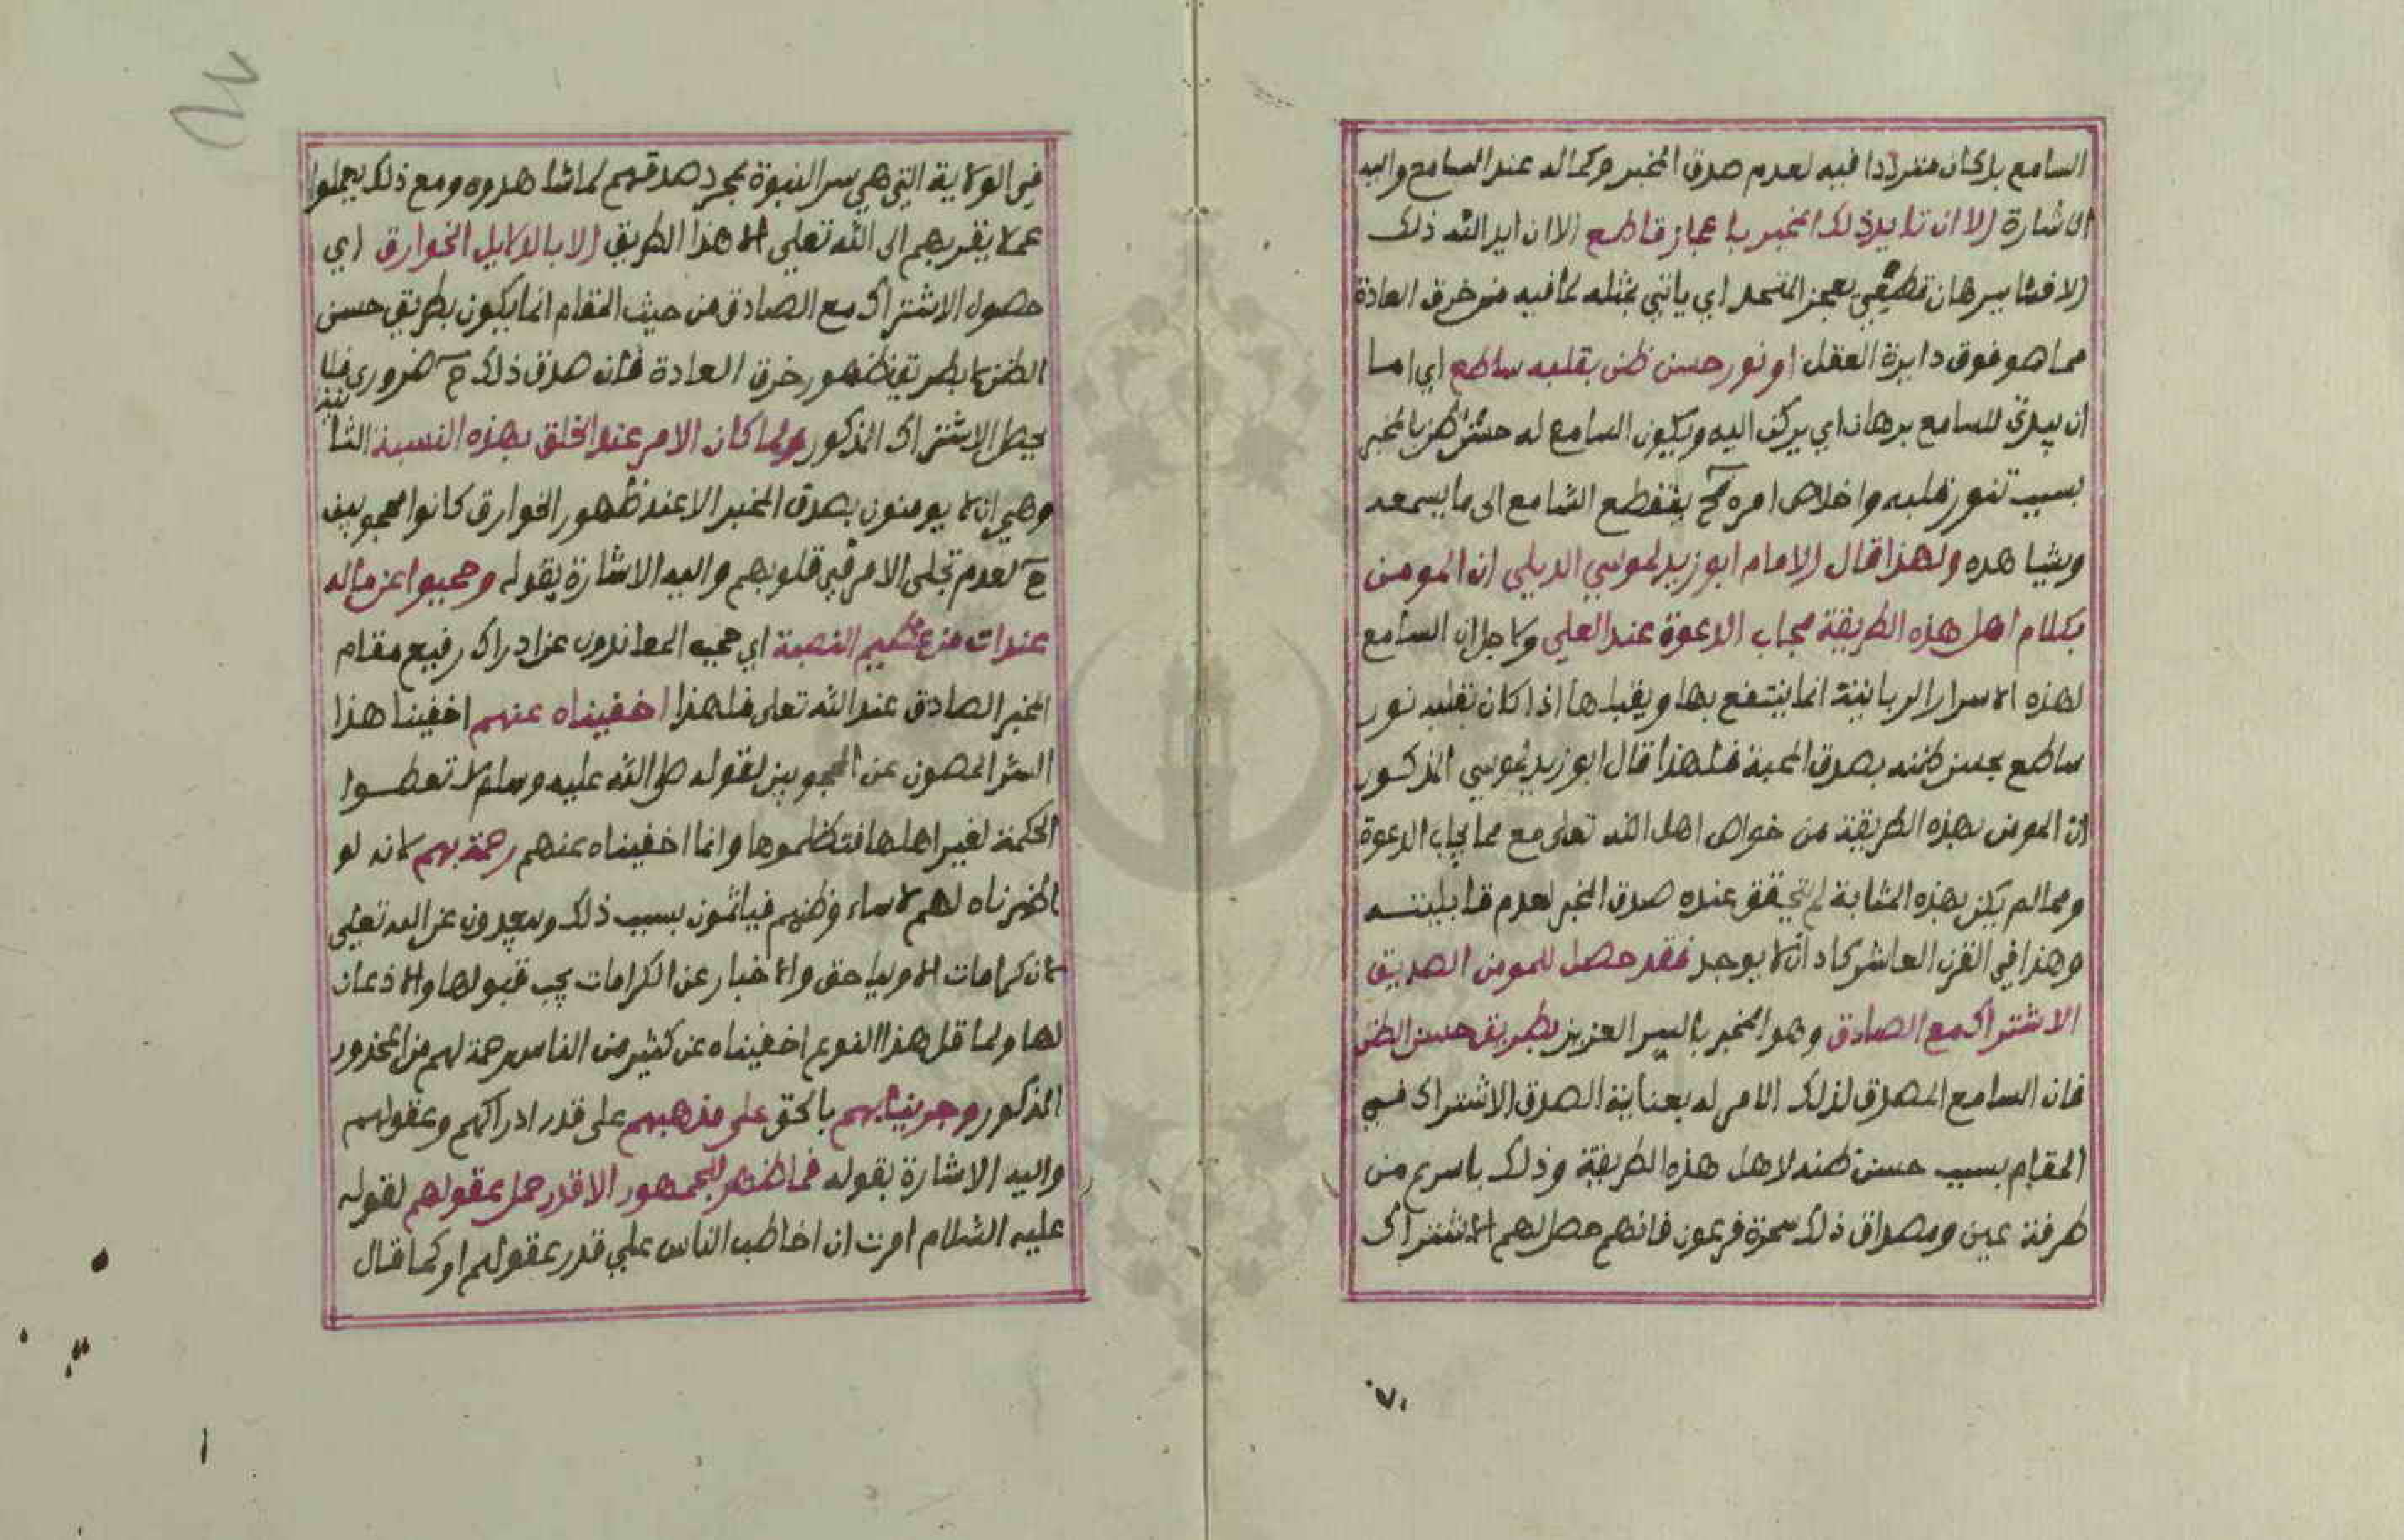 السامع بل كان مترددا فيه لعدم صدق المخبر وكماله عند السامع واليه
الاشارة الا ان تايد ذلك المخبر باعجاز قاطع الا ان ايد الله ذلك
الافشا ببرهان قطيعي يعجز المتحد اي ياتي بمثله لما فيه من خرق العادة
مما هو فوق دايرة العقل او نور حسن ظن بقلبه ساطع اي اما
ان يبدي للسامع برهانا اي يركن اليه ويكون السامع له حسن ظن بالمخبر
بسبب تنور قلبه واخلاص امره ح ينقطع السامع الى ما يسمعه
ويشاهده ولهذا قال الامام ابو زيد لموسي الديلي ان المومن
بكلام اهل هذه الطريقة مجاب الدعوة عند العلي ولاجل ان السامع
لهذه الاسرار الربانية انما ينتفع بها ويقبلها اذا كان بقلبه نور
ساطع بحسن ظنه بصدق المحبة فلهذا قال ابو زيد لموسي المذكور
ان المومن بهذه الطريقة من خواص اهل الله تعلى مع مما يجاب الدعوة
ومما لم يكن بهذه المثابة لم يتحقق عنده صدق المخبر لعدم قابليته
وهذا في القرن العاشر كاد ان لا يوجد فقد حصل للمومن الصديق
الاشتراك مع الصادق وهو المخبر بالسر العزيز بطريق حسن الظن
فان السامع المصدق لذلك الامر له بعناية الصدق الاشتراك في
المقام بسبب حسن ظنه لاهل هذه الطريقة وذلك باسرع من
طرفة عين ومصداق ذلك سحرة فرعون فانهم حصل لهم الاشتراك
٧٠
في الولاية التي هي سر النبوة بمجرد صدقهم لما شاهدوه ومع ذلك يعملوا
عملا يقربهم الى الله تعلى الا هذا الطريق الا بالدلايل الخوارق اي
حصول الاشتراك مع الصادق من حيث المقام انما يكون بطريق حسن
الظن لا بطريق ظهور خرق العادة فان صدق ذلك ح ضروري فلا
يحط الاشتراك المذكور ولما كان الامر عند الخلق بهذه النسبة الثانية
وهي ان لا يومنون بصدق المخبر الا عند ظهور الخوارق كانوا محجوبين
ح لعدم تجلى الامر في قلوبهم واليه الاشارة بقوله وحجبوا عن ما له
عند الله من عظيم النصبة اي حجب المعاندون عن ادراك رفيع مقام
المخبر الصادق عند الله تعلى فلهذا اخفيناه عنهم اخفينا هذا
السر المصون عن المحجوبين لقوله صلى الله عليه وسلم لا تعطوا
الحكمة لغير اهلها فتظلموها وانما اخفيناه عنهم رحمة بهم لانه لو
اظهرناه لهم لاساء وظنهم فياثمون بسبب ذلك ويبعدون عن الله تعلى
لان كرامات الاوليا حق والاخبار عن الكرامات يجب قبولها والاذعان
لها ولما قل هذا النوع اخفيناه عن كثير من الناس رحمة لهم من المحذور
المذكور وجرينا بهم بالحق على مذهبهم على قدر ادراكهم وعقولهم
واليه الاشارة بقوله فما ظهر للجمهور الا قدر حمل عقولهم لقوله
عليه السلام امرت ان اخاطب الناس علي قدر عقولهم او كما قال